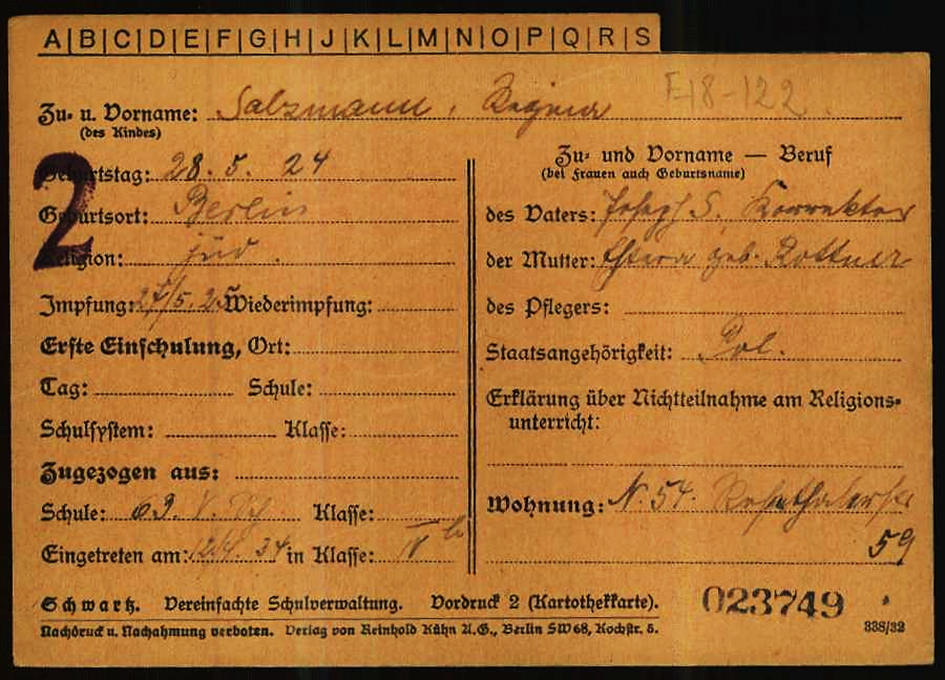 A|B|C|D|E|F|G|H|J|K|L|M|N|O|P|Q|R|S
F-18-122
Zu- u. Vorname: Salzmann, Regina
(des Kindes)
2
Geburtstag: 28. 5. 24
Geburtsort: Berlin
Religion: jüd.
Impfung: 27/5. 25 Wiederimpfung:
Erste Einschulung, Ort:
Tag: Schule:
Schulsystem: Klasse:
Zugezogen aus:
Schule: 69. V. Sch Klasse:
Eingetreten am: 12/4. 34 in Klasse: IV b
Zu- und Vorname — Beruf
(bei Frauen auch Geburtsname)
des Vaters: Josef S. Korrektor
der Mutter: Estera geb. Rottner
des Pflegers:
Staatsangehörigkeit: Pol.
Erklärung über Nichtteilnahme am Religions-
unterricht:
Wohnung: N. 54. Rosenthalerstr
59
Schwartz. Vereinfachte Schulverwaltung. Vordruck 2 (Kartothekkarte).
Nachdruck u. Nachahmung verboten. Verlag von Reinhold Kühn A.G., Berlin SW 68, Kochstr. 5.
023749
338/32